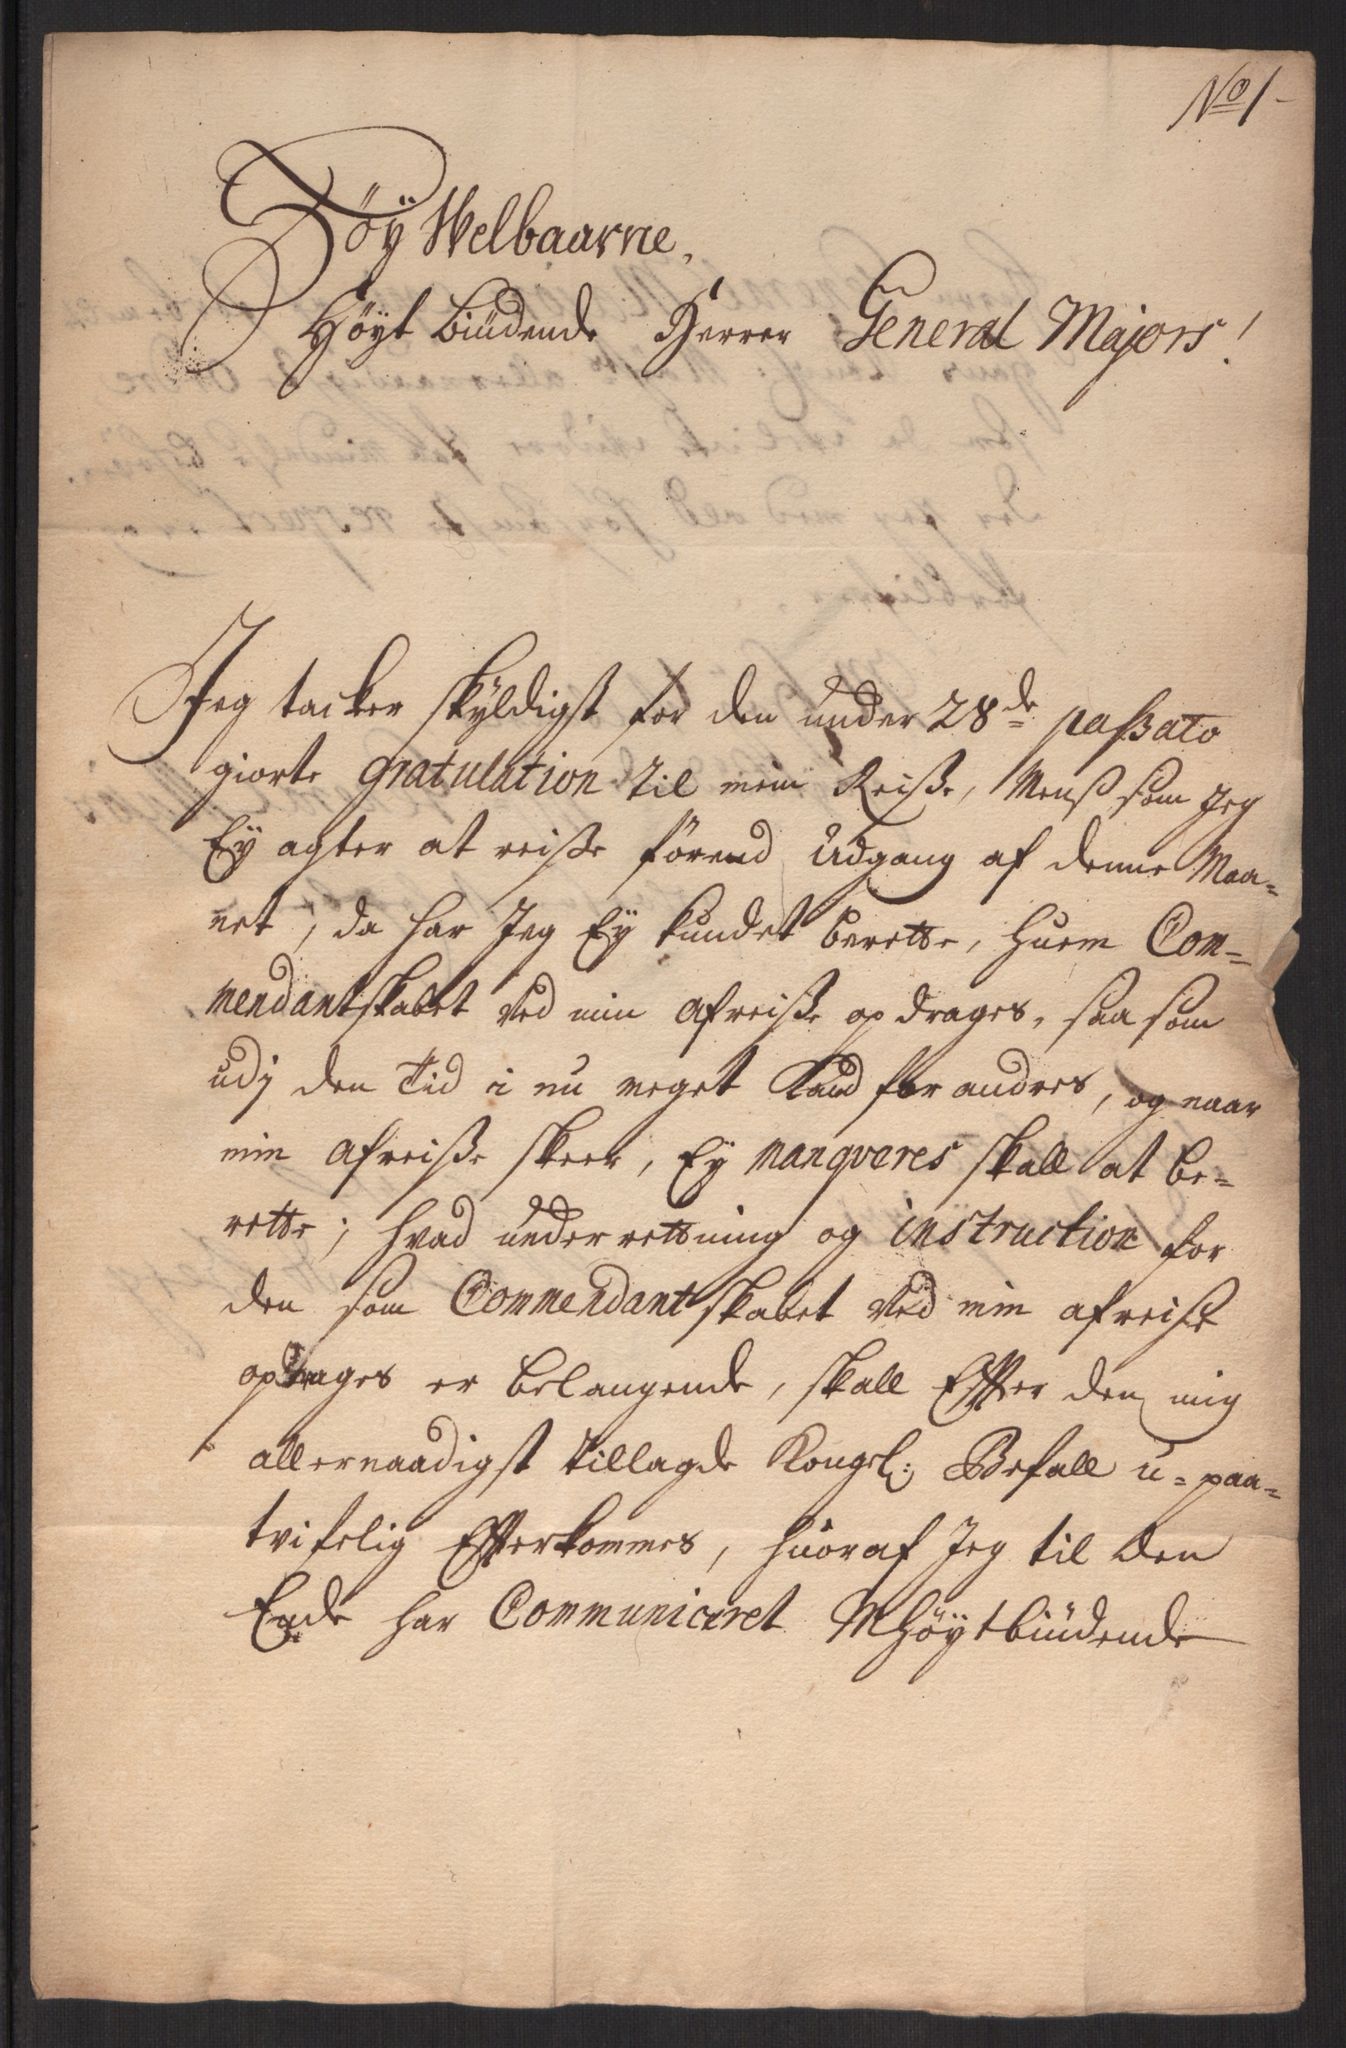 No 1-
Höÿ Welbaarne,
Höÿt biüdende Herrer General Majors!
Jeg tacker skÿldigst for den under 28de passato
giorte gratulation til min Reiße, Menß som Jeg
Eÿ agter at reiße förend Udgang af denne Maa=
net, da har Jeg Eÿ kundet berette, huem Com=
mendantskabet ved min afreiße op drages, saa som
udj den Tid i nu meget Kand for andres, og naar
min afreiße skeer, Eÿ manqveres skall at be=
rette; hvad underrettning og instruction for
den som Commendantskabet ved min afreiße
opdrages er belangende, skall Effter den mig
allernaadigst tillagde Kongel: Befall u=paa=
tvifelig Effterkommes, huoraf Jeg til den
Ende har Communiceret MHöÿtbiüdende